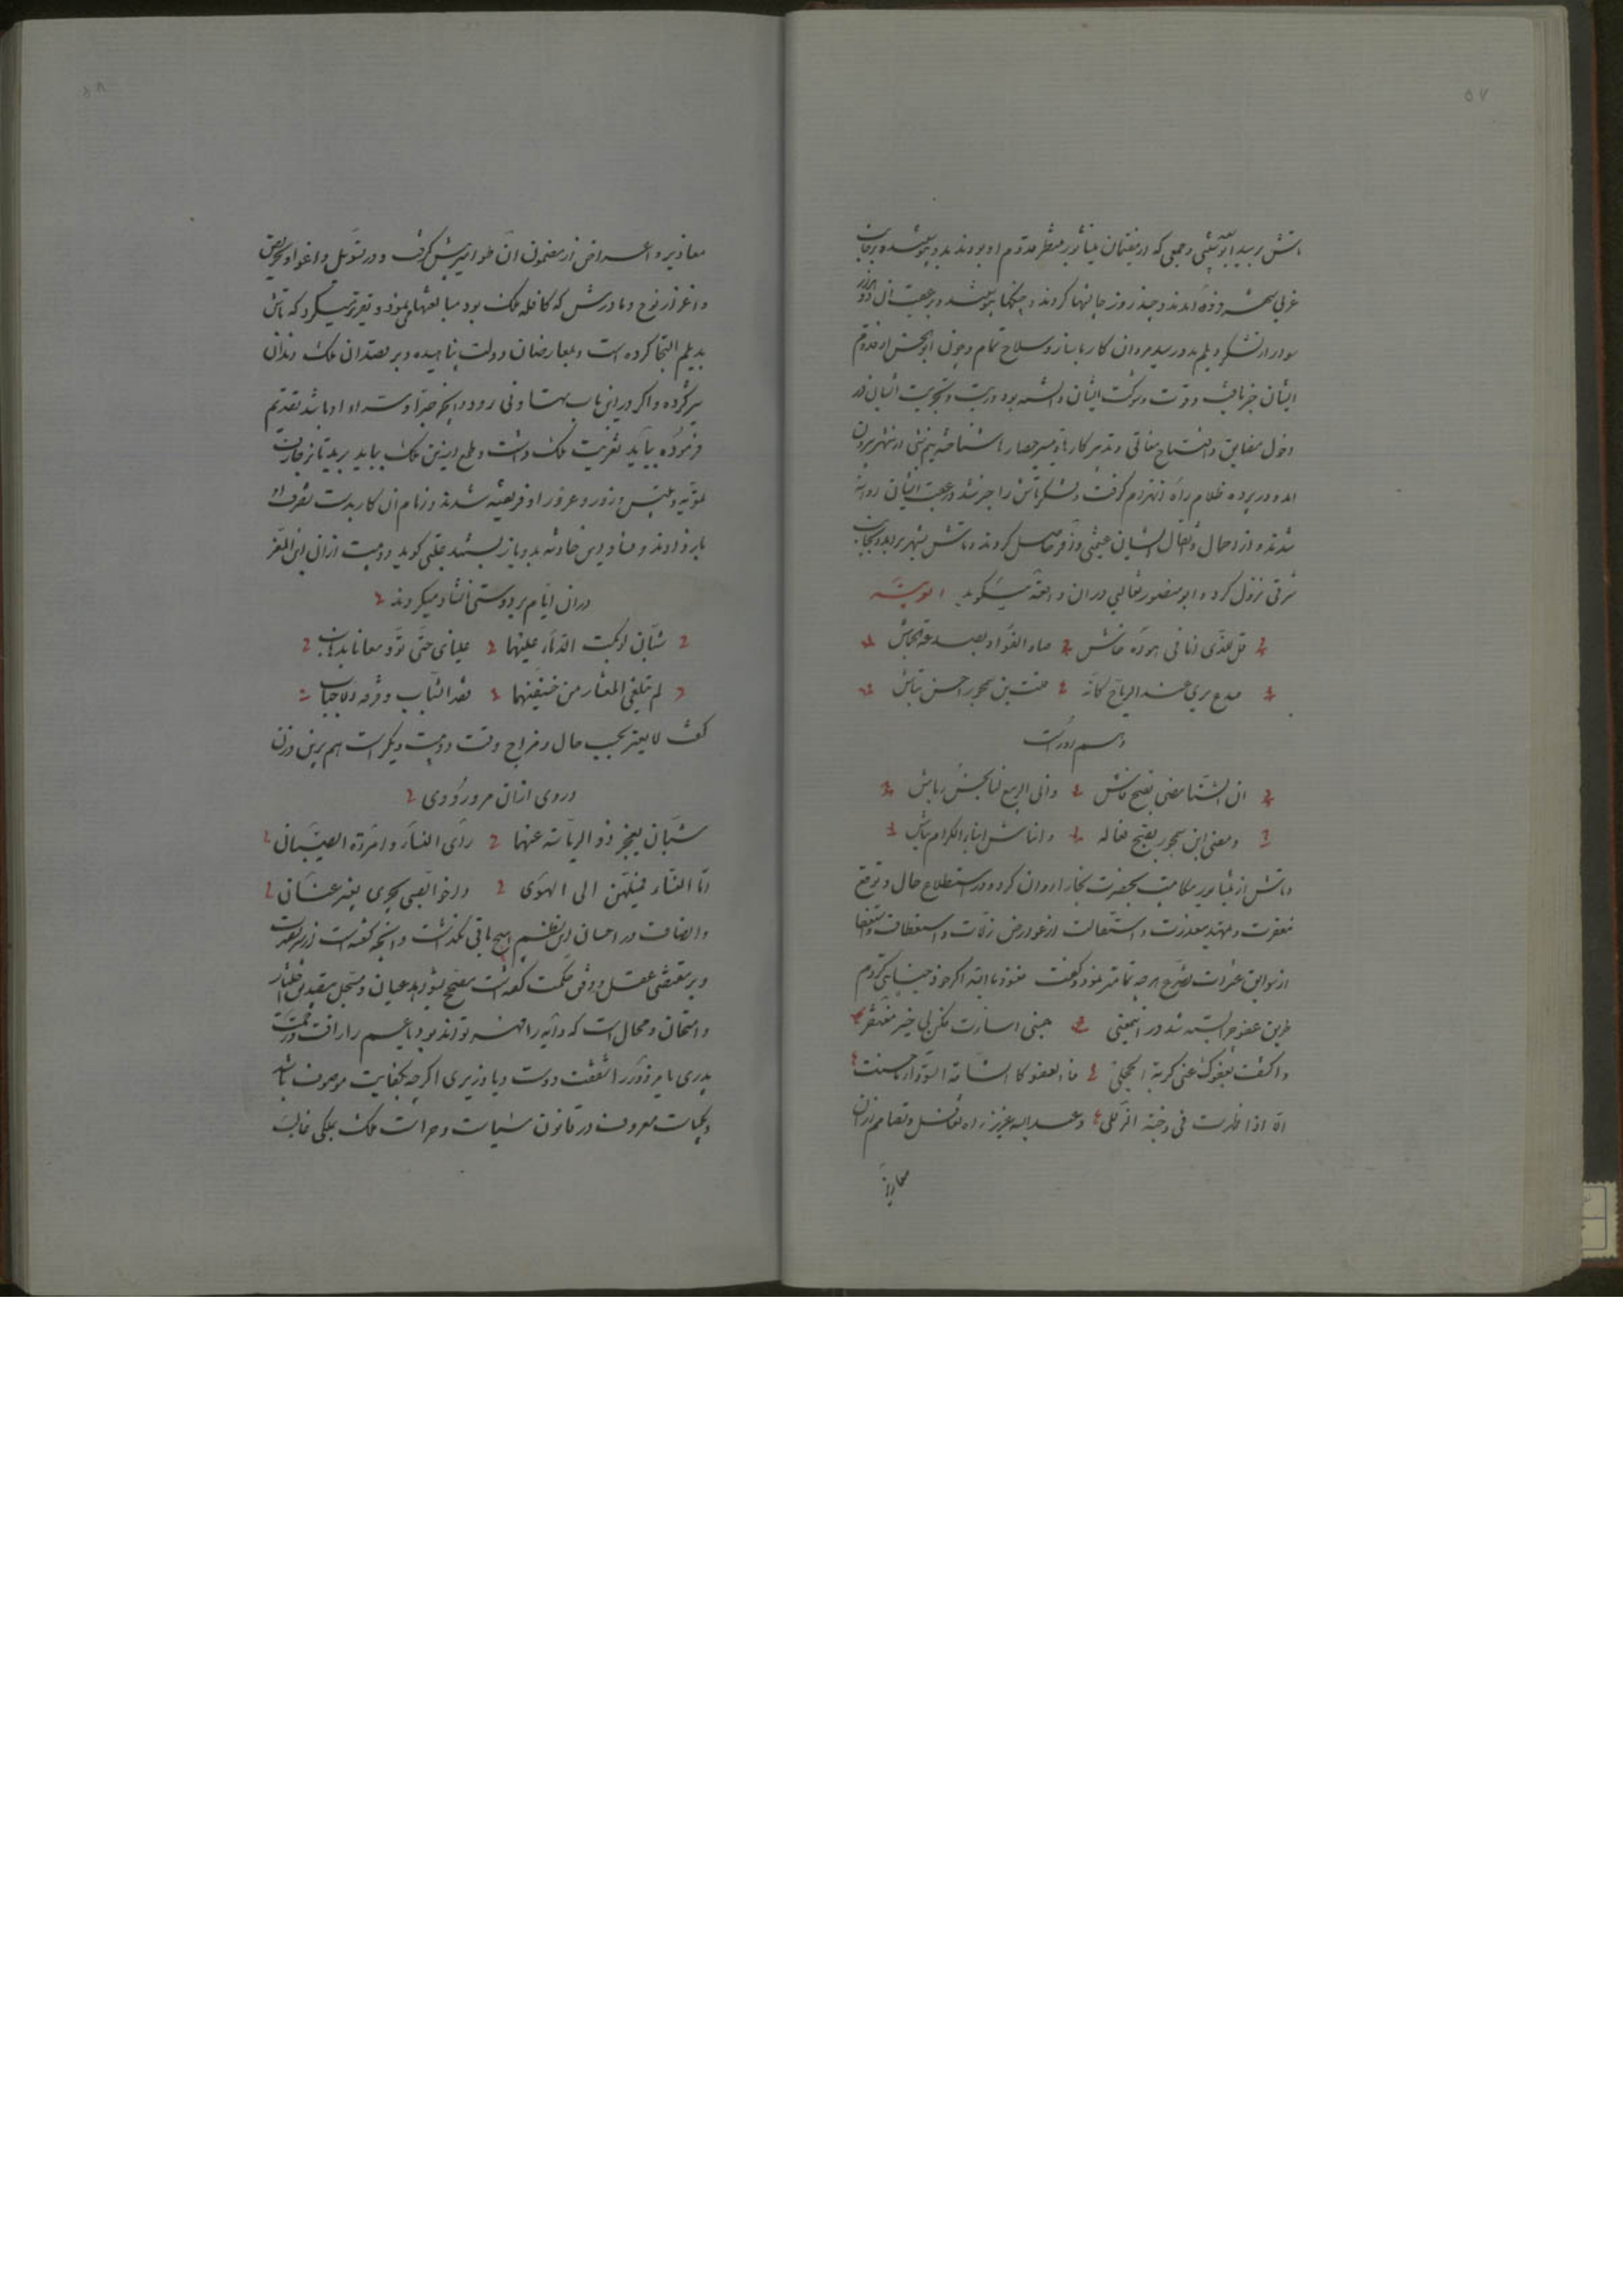 ۵۷
تاش رسید ابو سعید شیبی و جمعی که از مقیمان نیشابور منتظر قدوم او بودند بدو پیوسته بر جانب
غربی شهر فرود آمدند و چند روز جالشها کردند و جنگها پیوسته و بر عقب آن دو هزار
سوار از لشکر دیلم بدو رسید مردان کار با ساز و سلاح تمام و چون ابو الحسن از قدوم
ایشان خبر یافت و قوت و شوکت ایشان دانسته بود و دربت و تجربت ایشان در
دخول مضایق و افتتاح مغالق و تدبیر کارها و تیسیر حصارها شناخته نیم شبی از شهر بیرون
آمد و در پرده ظلام راه انهزام گرفت و لشکر تاش را خبر شد و بر عقب ایشان روانه
شدند و از احمال و اثقال ایشان غنیمتی وافر حاصل کردند و تاش بشهر در آمد و بجانب
شرقی نزول کرد و ابو منصور ثعالبی در آن واقعه میگوید
قل للذی انا فی هواه خاش صاد الفؤاد بصدغه الجماش
صدغ یری عند الریاح کانه قلب بن سیمجور احس بتاش
و هم او راست
ان الشتا مضی بقبح فاش و اتی الربیع لنا بحسن ریاش
و مضی ابن سیمجور بقبح فعاله و انتاش ابناء الکرام بتاش
و تاش از نیشابور مکاتبت بحضرت بخارا روان کرد و در استطلاع حال و توقع
مغفرت و تمهید معذرت و استقالت از عوارض زلات و استعطاف و استعفا
از سوابق عثرات تضرع هر چه تمامتر نمود و گفت نعوذ بالله اگر خود جنایتی کردم
طریق عفو بر بسته شد
هبنی اسأت فکن لی خیر مغتفر
و اکشف بعفوک عنی کربة الخجل
ما العفو کالشامة السوداء ما حسنت
الا اذا ظهرت فی وجنة الزلل و عبد الله عزیز راه تغافل و تصامم از آن
معاذیر
۵۸
معاذیر و اعراض از مضمون آن طوامیر پیش گرفت و در تسویل و اغوا و تحریض
و اغراء نوح و مادرش که کافله ملک بود مبالغتها مینمود و تقریر میکرد که تاش
بدیلم التجا کرده است و بمعارضان دولت پناهیده و بر تصد آن ملک دندان
تیز کرده و اگر در این باب تهاونی رود و آنچه حزم او باشد تقدیم
فرموده نیاید تعزیت ملک داشت و طمع ازین ملک بباید برید تا ایشان
بتمویه و تلبیس و زور و غرور او فریفته شدند و زمام آن کار بدست تصرف او
باز دادند و فساد این حادثه بدو باز بستند عتبی گوید دو بیت از آن ابن المعتز
در آن ایام بر دوستی انشاد میکردند
شیئان لو بکت الدماء علیهما عینای حتی تؤذنا بذهاب
لم تبلغ المعشار من حقیهما فقد الشباب و فرقة الاحباب
گفت لایقتر بحسب حال و مزاج وقت دو بیت دیگر است هم برین وزن
و روی از آن مرورودی
شیئان یعجز ذو الریاسة عنهما رأی النساء و امرة الصبیان
اما النساء فمیلهن الی الهوی و اخو الصبی یجری بغیر عنان
و انصاف در احسان این نظم هیچ باقی نگذاشت و آنچه گفته است از سر بصیرت
و بر مقتضی عقل و وفق حکمت گفته است مصحح بشواهد عیان و مسجل بتقیید اختبار
و امتحان و محال است که دایه را مهر تواند بود یا عم را رأفت و رحمت
پدری یا مزدور را شفقت دوست و یا وزیری اگر چه بکفایت موصوف باشد
و بکیاست معروف در قانون سیاست و حراست ملک بملکی غالب